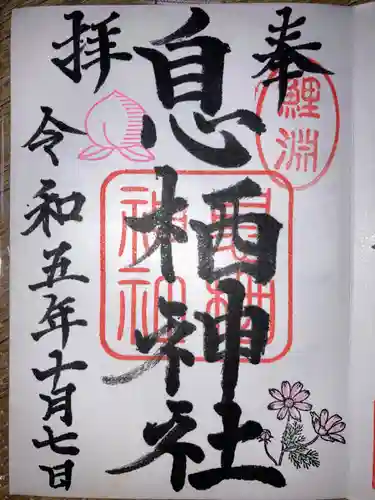 奉拝
鯉淵
息栖神社
息栖神社
令和五年十月七日